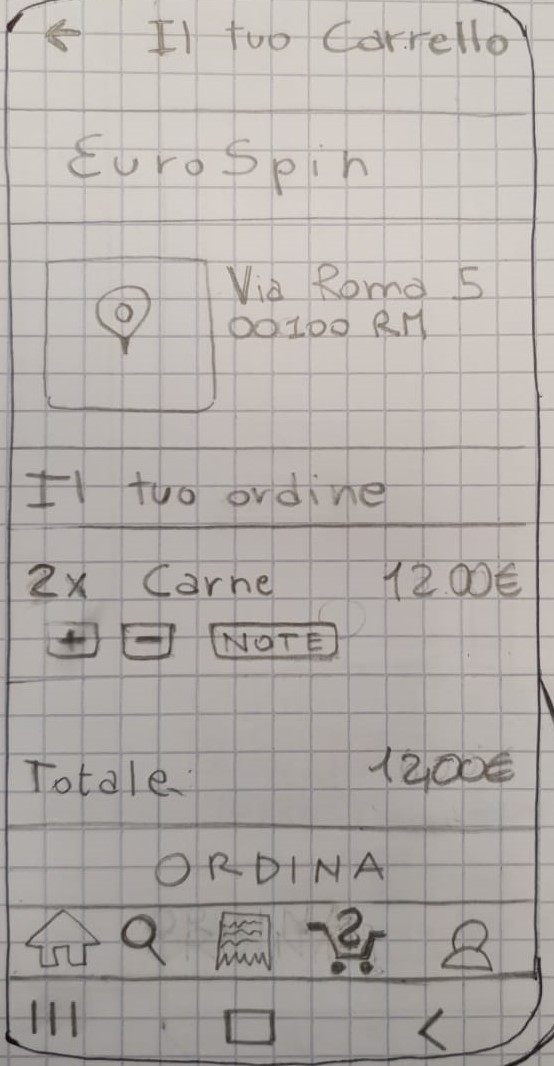 ← Il tuo Carrello
EuroSpin
Via Roma 5
00100 RM
Il tuo ordine
2x Carne 12.00€
+ - NOTE
Totale 12,00€
ORDINA
2